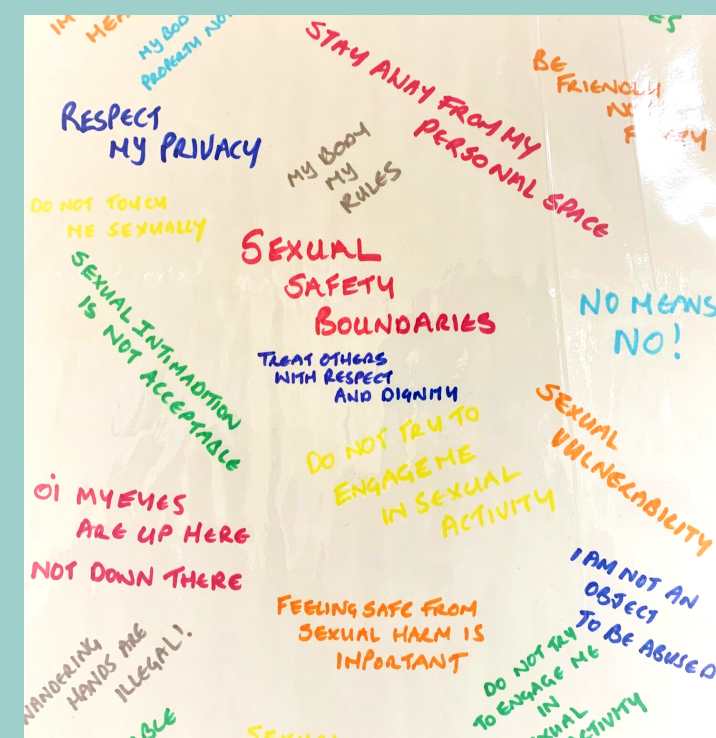 IM
MEA
MY BOD
PROPERTY NO
ES
STAY AWAY FROM MY
PERSONAL SPACE
BE
FRIENDLY
RESPECT
MY PRIVACY
MY BODY
MY
RULES
DO NOT TOUCH
ME SEXUALLY
SEXUAL
SAFETY
BOUNDARIES
SEXUAL INTIMADITION
IS NOT ACCEPTABLE
NO MEANS
NO!
TREAT OTHERS
WITH RESPECT
AND DIGNITY
DO NOT TRY TO
ENGAGE ME
IN SEXUAL
ACTIVITY
SEXUAL
VULNERABILITY
Oi MY EYES
ARE UP HERE
NOT DOWN THERE
I AM NOT AN
OBJECT
TO BE ABUSED
FEELING SAFE FROM
SEXUAL HARM IS
IMPORTANT
WANDERING
HANDS ARE
ILLEGAL!
DO NOT TRY
TO ENGAGE ME
IN
XUAL
CTIVITY
ABLE
SEXUAL